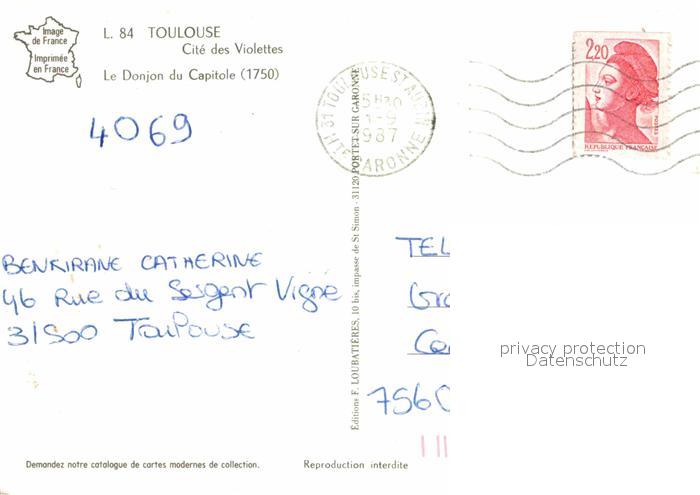 Image
de France
Imprimée
en France
L. 84 TOULOUSE
Cité des Violettes
Le Donjon du Capitole (1750)
4069
31 TOULOUSE ST AUBIN
5H30
1-9
1987
HTE GARONNE
2,20
POSTES
REPUBLIQUE FRANÇAISE
Éditions F. LOUBATIÈRES, 10 bis, impasse de St Simon - 31120 PORTET-SUR-GARONNE
BENKIRANE CATHERINE
46 Rue du Sergent Vigné
31500 Toulouse
TEL
7560
privacy protection
Datenschutz
Demandez notre catalogue de cartes modernes de collection.
Reproduction interdite